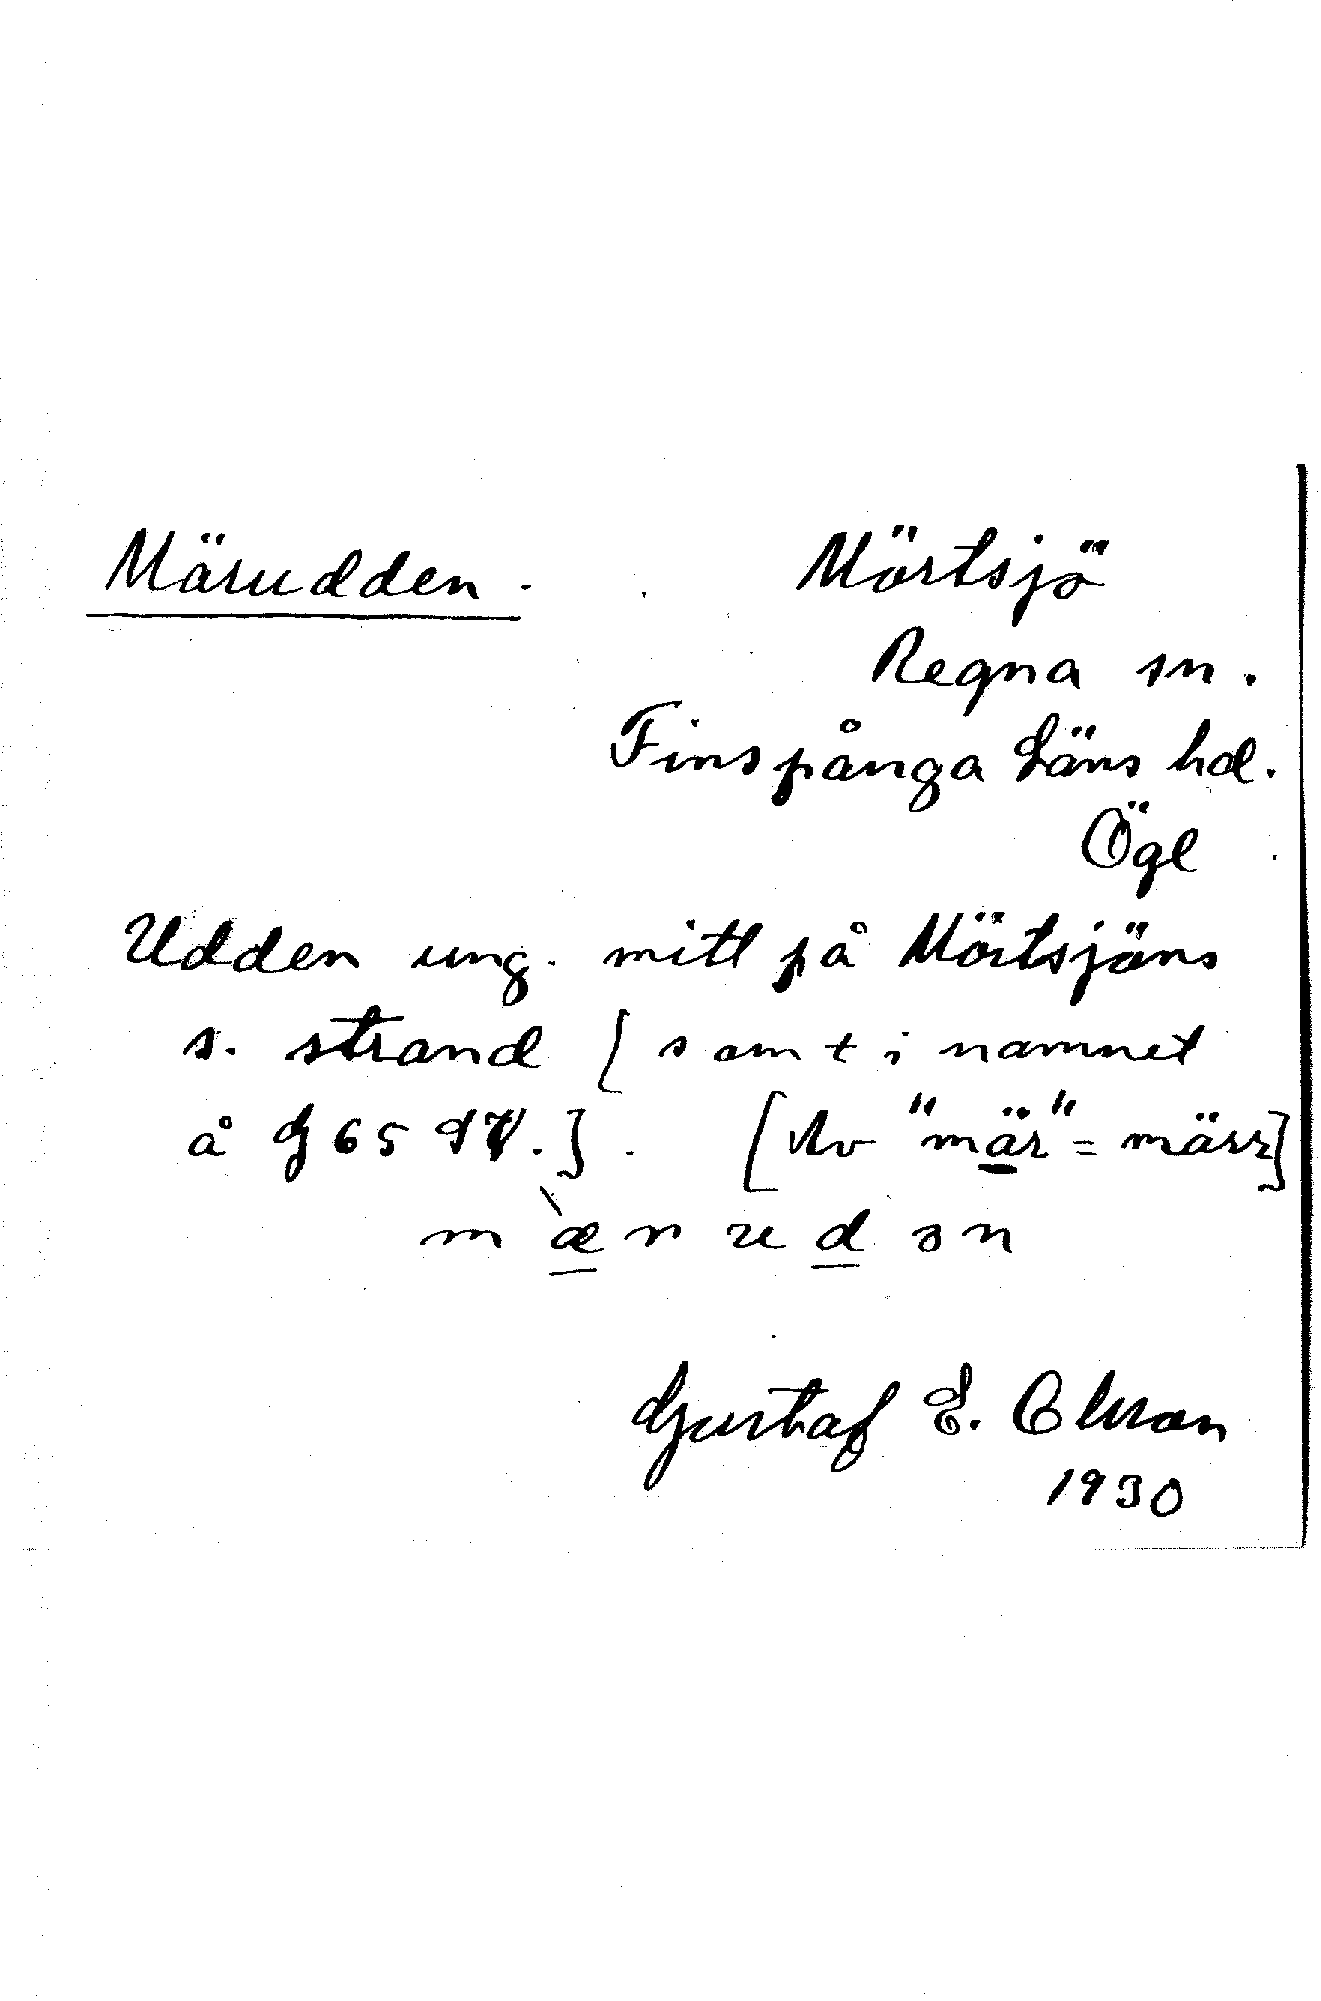 Märudden.
Mörtsjö
Regna sn.
Finspånga Läns hd.
Ögl
Udden ung. mitt på Mörtsjöns
s. strand [samt i namnet
å G 65 SV.]. [Av "mär" = märr]
m æ r u d ə n
Gustaf E. Olsson
1930